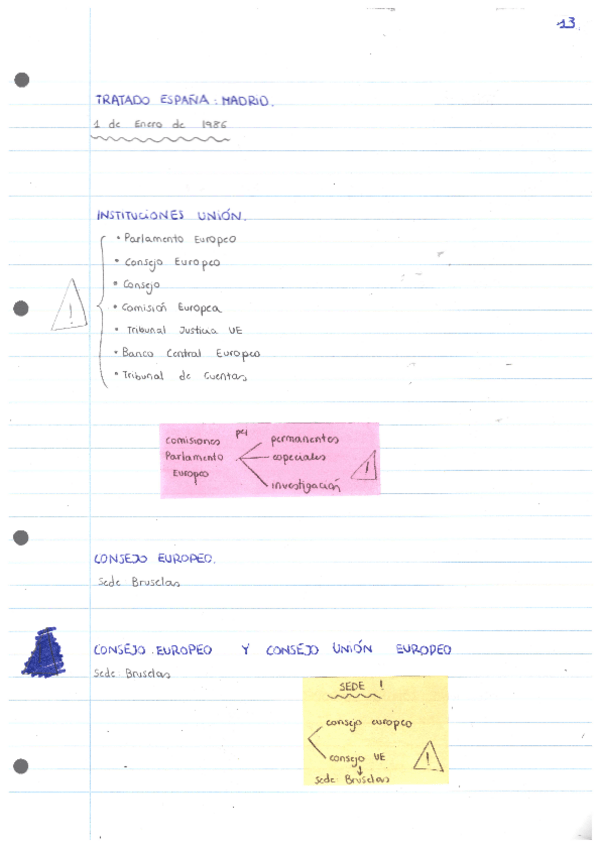 13
TRATADO ESPAÑA: MADRID.
1 de Enero de 1986
INSTITUCIONES UNIÓN.
• Parlamento Europeo
• Consejo Europeo
• Consejo
• Comisión Europea
• Tribunal Justicia UE
• Banco Central Europeo
• Tribunal de Cuentas
!
comisiones
Parlamento
Europeo
permanentes
especiales
investigación
!
CONSEJO EUROPEO.
Sede Bruselas
CONSEJO EUROPEO Y CONSEJO UNIÓN EUROPEO
Sede Bruselas
SEDE !
consejo europeo
consejo UE
!
sede Bruselas